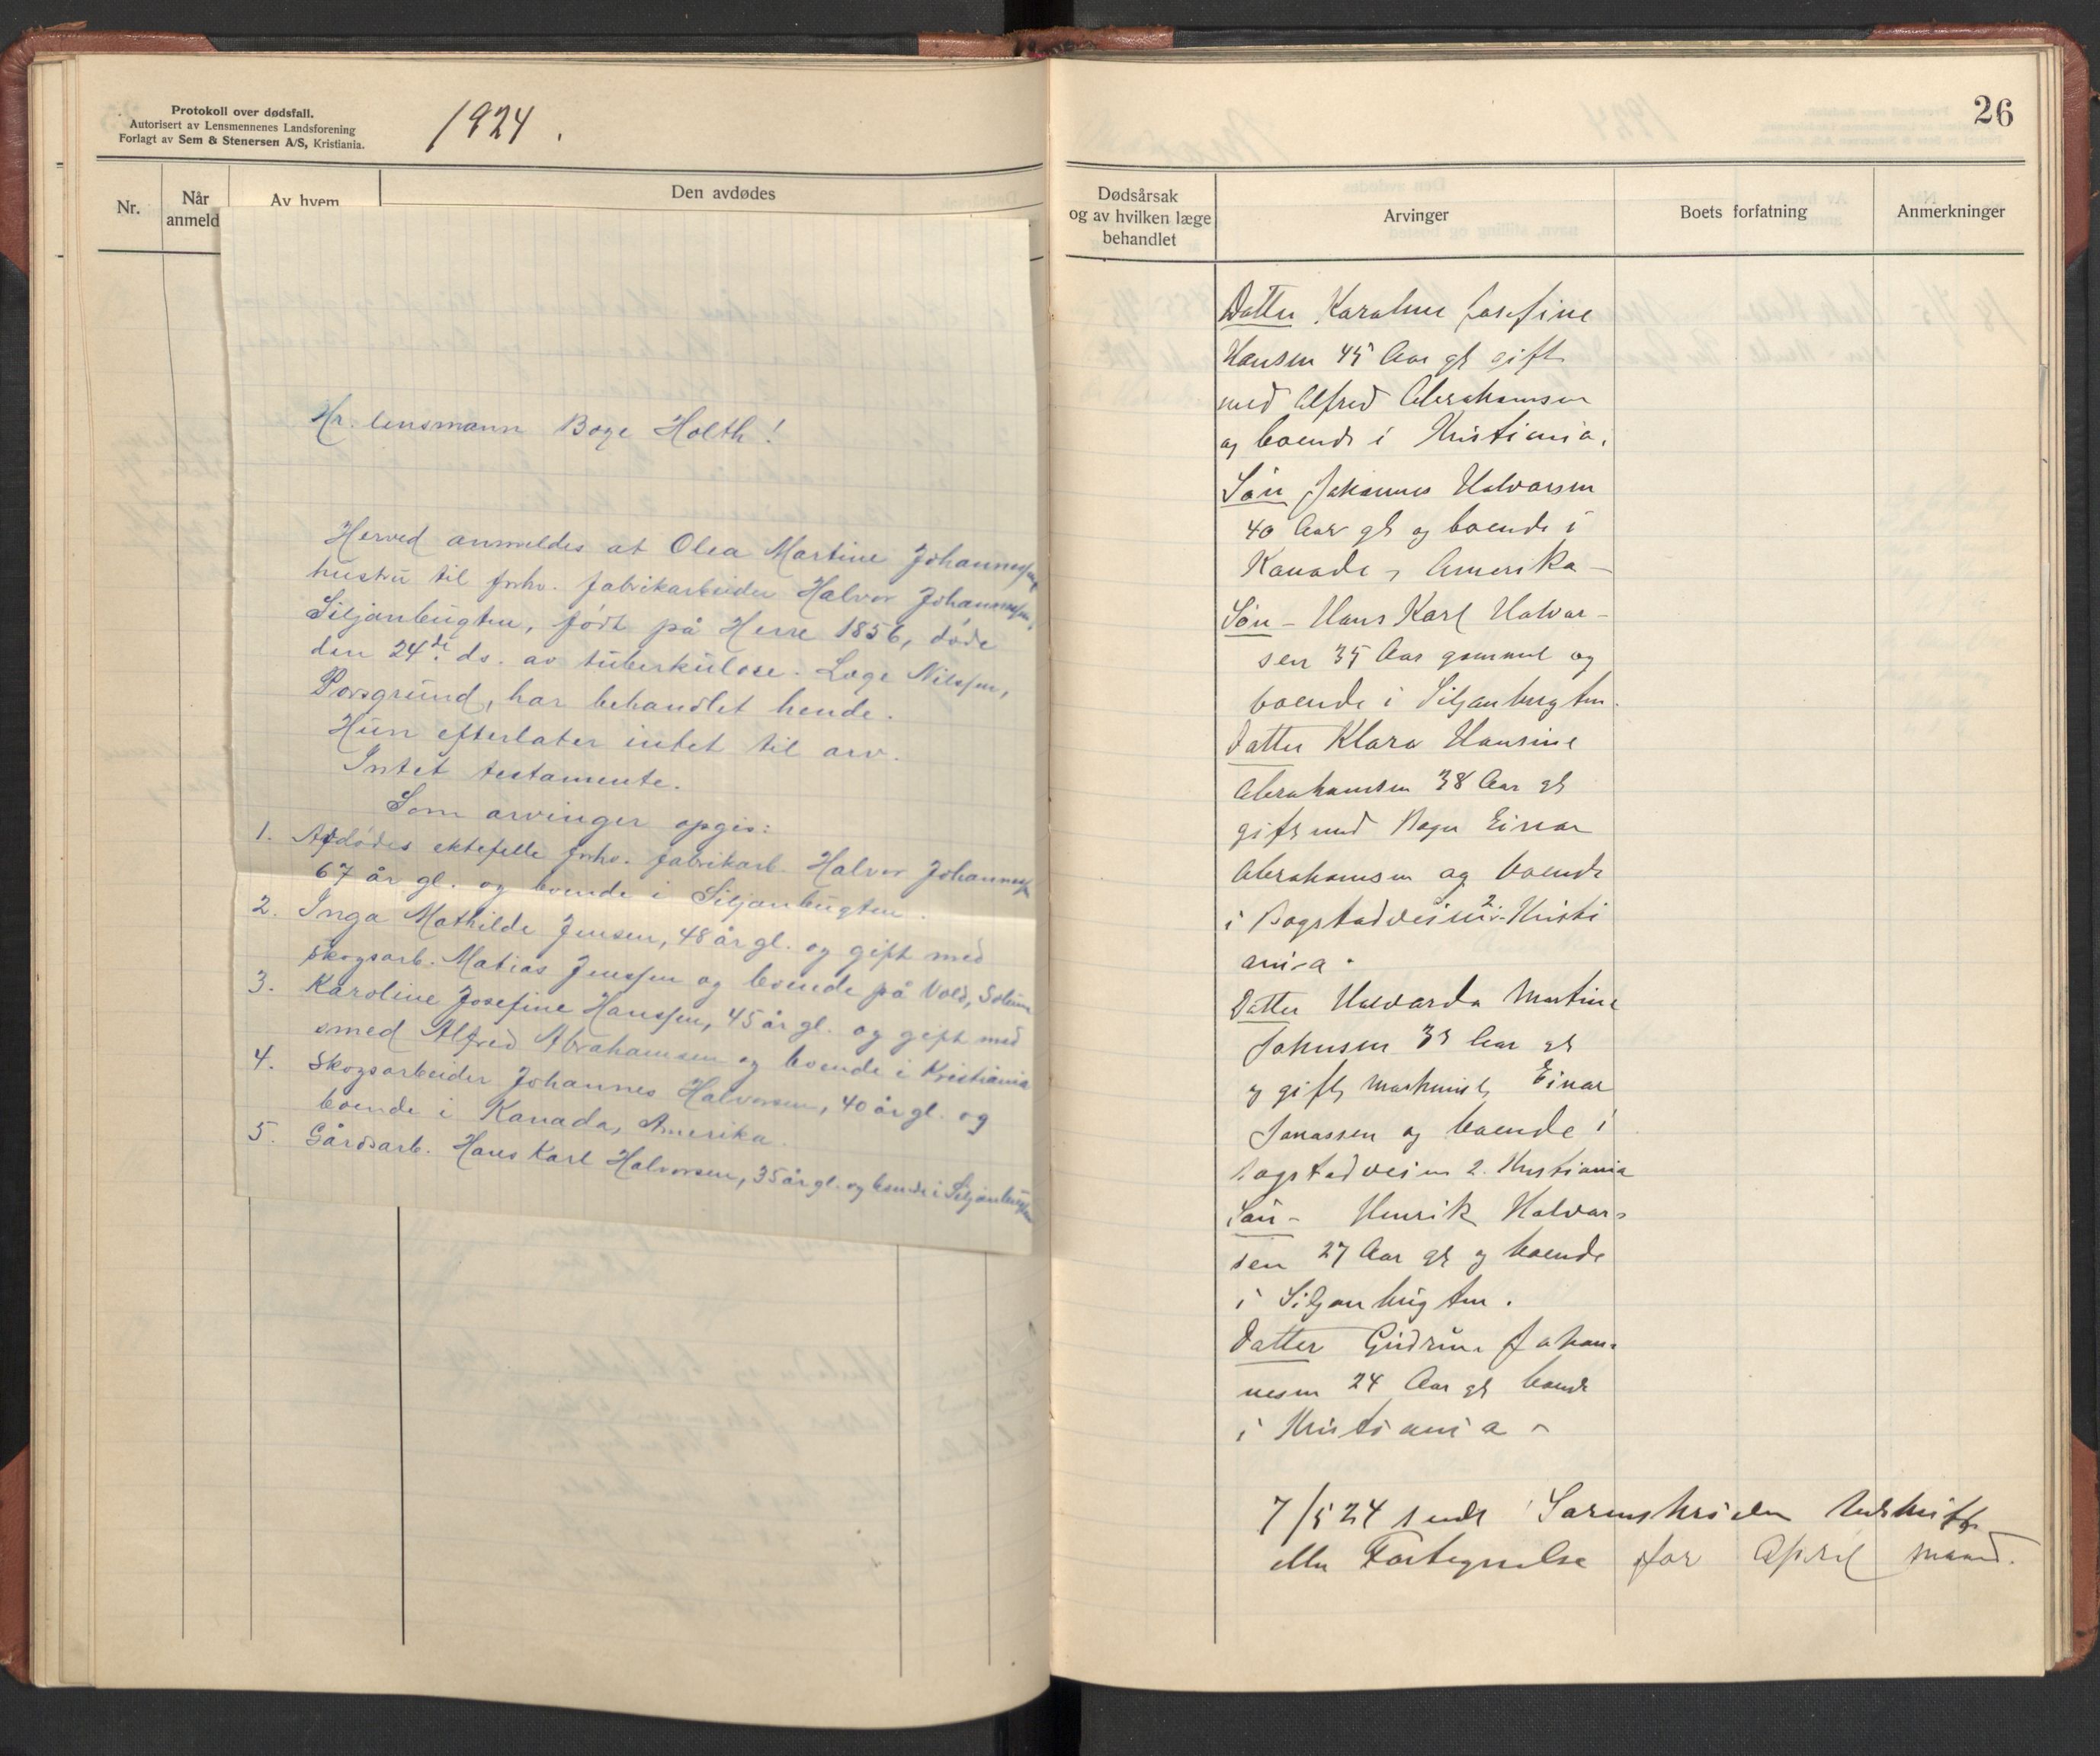 Protokoll over dødsfall.
Autorisert av Lensmennenes Landsforening
Forlagt av Sem & Stenersen A/S, Kristiania.
1924.
Nr.
Når
anmeld
Av hvem
Den avdødes
Hr. lensmann Boye Holth!
Herved anmeldes at Olea Martine Johannessen,
hustru til fhv. fabrikarbeider Halvor Johannessen,
Siljanbugten, født på Herre 1856, døde
den 24de ds. av tuberkulose. Læge Nilssen,
Porsgrund, har behandlet hende.
Hun efterlater intet til arv.
Intet testamente.
Som arvinger opgis:
1. Avdødes ektefelle fhv. fabrikarb. Halvor Johannessen
67 år gl. og boende i Siljanbugten.
2. Inga Mathilde Jensen, 48 år gl. og gift med
skogsarb. Matias Jenssen og boende på Vold, Solum
3. Karoline Josefine Hanssen, 45 år gl. og gift med
smed Alfred Abrahamsen og boende i Kristiania
4. Skogsarbeider Johannes Halvorsen, 40 år gl. og
boende i Kanada, Amerika.
5. Gårdsarb. Hans Karl Halvorsen, 35 år gl. og boende i Siljanbugten
26
Dødsårsak
og av hvilken læge
behandlet
Arvinger
Boets forfatning
Anmerkninger
Datter Karoline Josefine
Hansen 45 Aar gl gift
med Alfred Abrahamsen
og boende i Kristiania.
Søn Johannes Halvorsen
40 Aar gl og boende i
Kanada, Amerika –
Søn – Hans Karl Halvor-
sen 35 Aar gammel og
boende i Siljanbugten.
Datter Klara Hansine
Abrahamsen 38 Aar gl
gift med Einar
Abrahamsen og boende
i Bogstadveien 2 Kristi
ania.
Datter Halvarda Martine
Johnsen Aar gl
og gift maskinist Einar
Jonassen og boende i
Bogstadveien 2. Kristiania
Søn – Henrik Halvor-
sen 27 Aar gl og boende
i Siljanbugten.
Datter Gudrun Johan-
nesen 24 Aar gl boende
i Kristiania –
7/5 24 sendt Sorenskriveren Utskrift
eller Fortegnelse for April maaned.